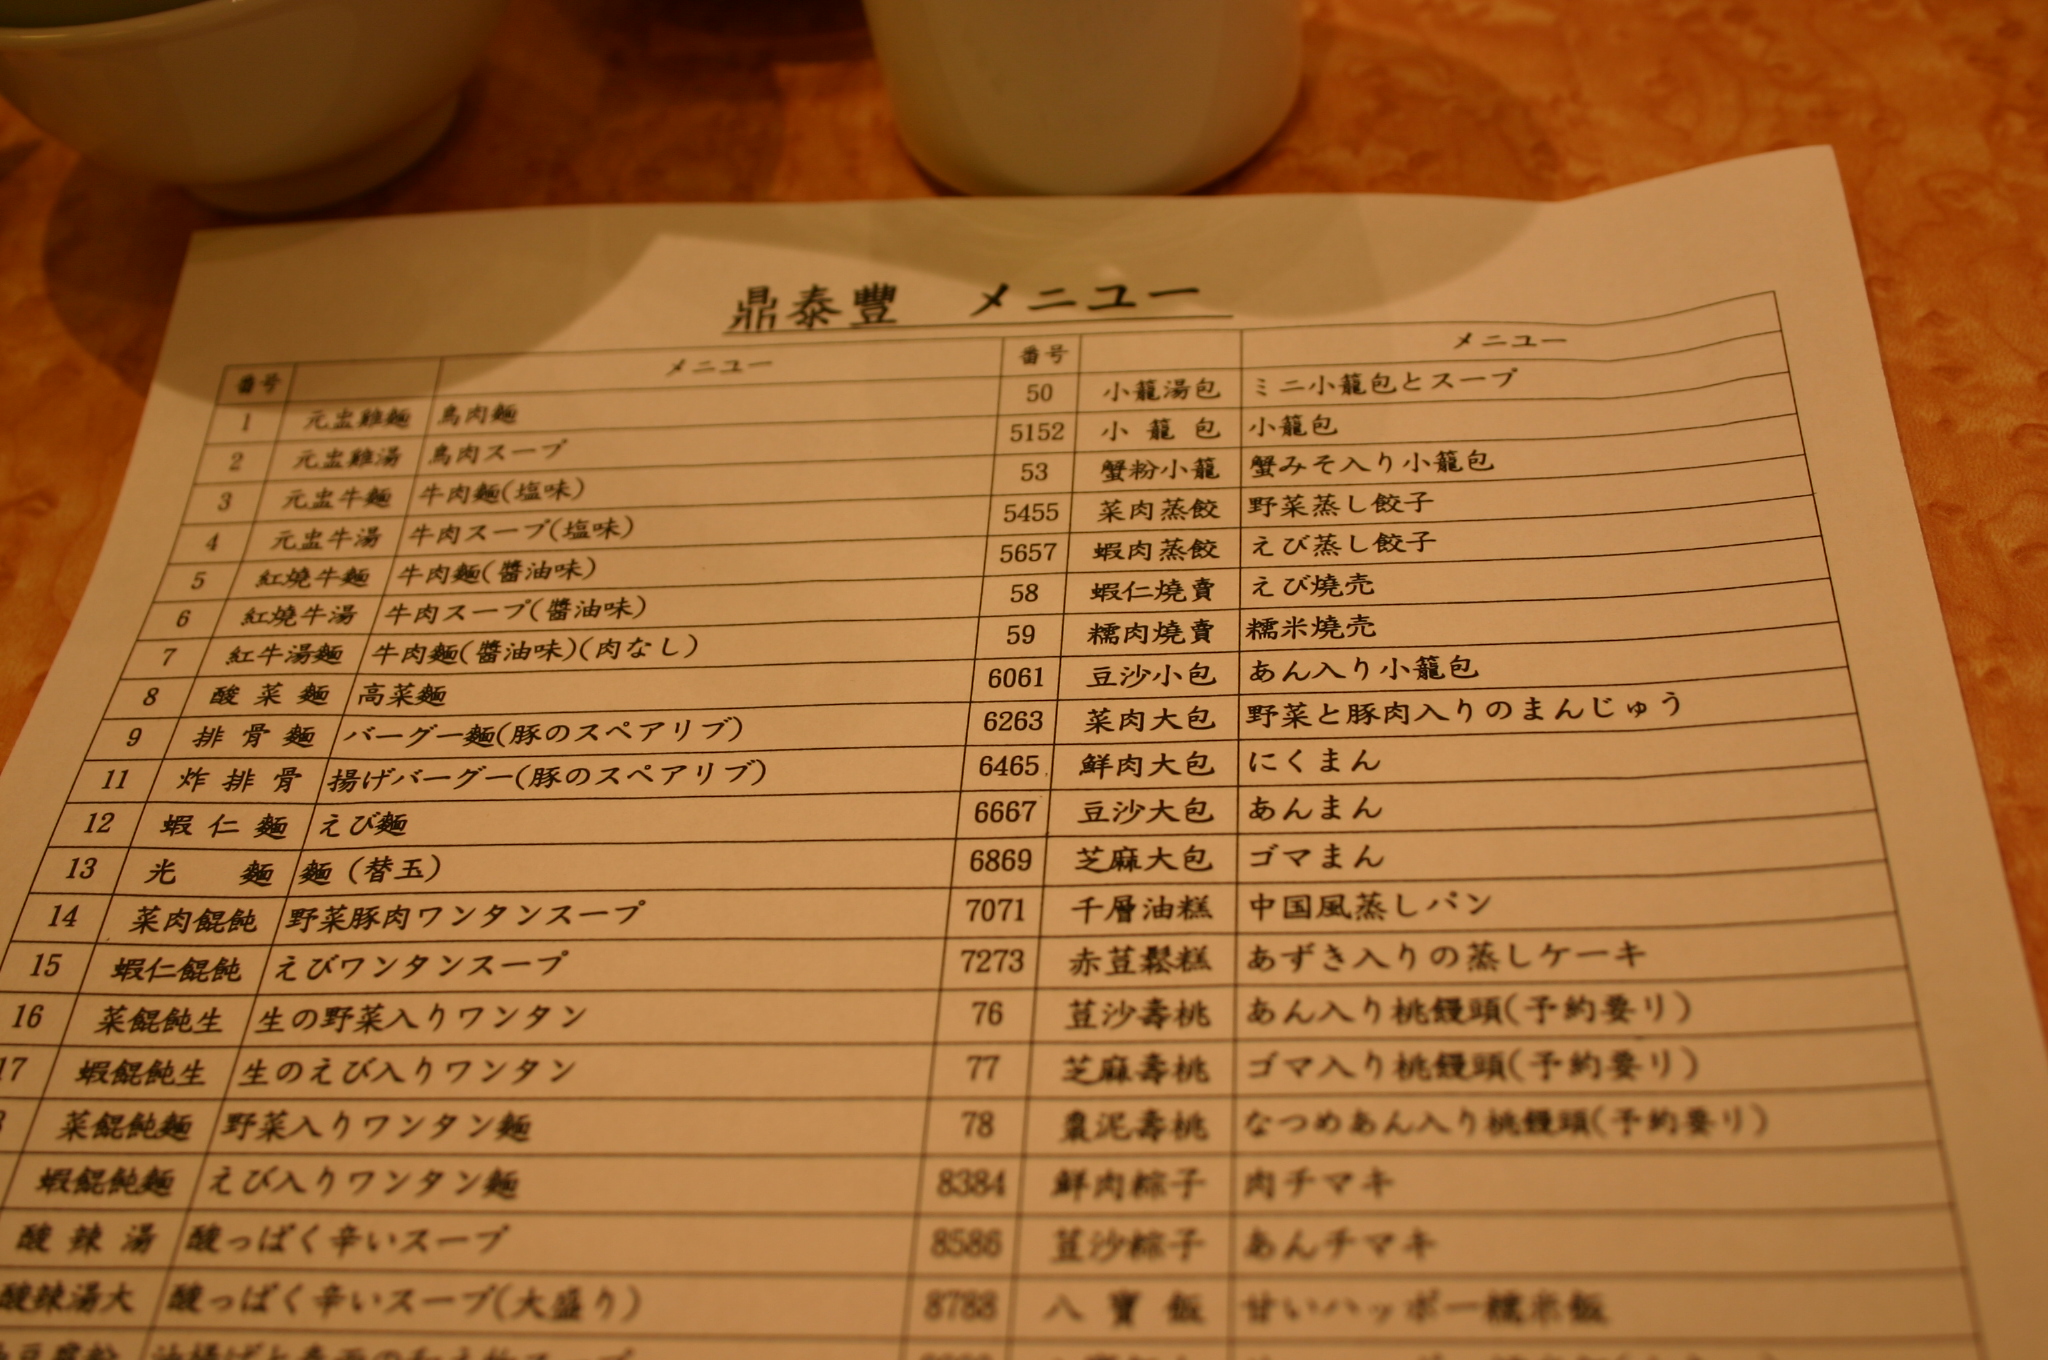 鼎泰豐 メニュー
番号 メニュー
1 元盅雞麵 鳥肉麵
2 元盅雞湯 鳥肉スープ
3 元盅牛麵 牛肉麵(塩味)
4 元盅牛湯 牛肉スープ(塩味)
5 紅燒牛麵 牛肉麵(醬油味)
6 紅燒牛湯 牛肉スープ(醬油味)
7 紅牛湯麵 牛肉麵(醬油味)(肉なし)
8 酸菜麵 高菜麵
9 排骨麵 バーグー麵(豚のスペアリブ)
11 炸排骨 揚げバーグー(豚のスペアリブ)
12 蝦仁麵 えび麵
13 光麵 麵(替玉)
14 菜肉餛飩 野菜豚肉ワンタンスープ
15 蝦仁餛飩 えびワンタンスープ
16 菜餛飩生 生の野菜入りワンタン
17 蝦餛飩生 生のえび入りワンタン
菜餛飩麵 野菜入りワンタン麵
蝦餛飩麵 えび入りワンタン麵
酸辣湯 酸っぱく辛いスープ
酸辣湯大 酸っぱく辛いスープ(大盛り)
番号 メニュー
50 小籠湯包 ミニ小籠包とスープ
5152 小籠包 小籠包
53 蟹粉小籠 蟹みそ入り小籠包
5455 菜肉蒸餃 野菜蒸し餃子
5657 蝦肉蒸餃 えび蒸し餃子
58 蝦仁燒賣 えび燒売
59 糯肉燒賣 糯米燒売
6061 豆沙小包 あん入り小籠包
6263 菜肉大包 野菜と豚肉入りのまんじゅう
6465 鮮肉大包 にくまん
6667 豆沙大包 あんまん
6869 芝麻大包 ゴマまん
7071 千層油糕 中国風蒸しパン
7273 赤荳鬆糕 あずき入りの蒸しケーキ
76 荳沙壽桃 あん入り桃饅頭(予約要リ)
77 芝麻壽桃 ゴマ入り桃饅頭(予約要リ)
78 棗泥壽桃 なつめあん入り桃饅頭(予約要リ)
8384 鮮肉粽子 肉チマキ
8586 荳沙粽子 あんチマキ
8788 八寶飯 甘いハッポー糯米飯